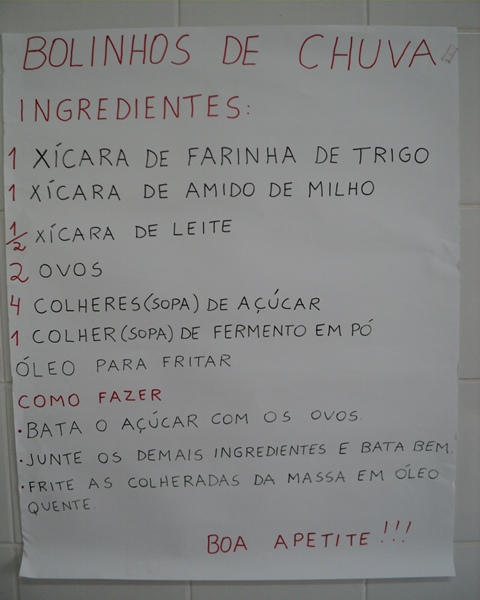 BOLINHOS DE CHUVA
INGREDIENTES:
1 XÍCARA DE FARINHA DE TRIGO
1 XÍCARA DE AMIDO DE MILHO
1/2 XÍCARA DE LEITE
2 OVOS
4 COLHERES(SOPA) DE AÇÚCAR
1 COLHER(SOPA) DE FERMENTO EM PÓ
ÓLEO PARA FRITAR
COMO FAZER
·BATA O AÇÚCAR COM OS OVOS.
·JUNTE OS DEMAIS INGREDIENTES E BATA BEM.
·FRITE AS COLHERADAS DA MASSA EM ÓLEO
QUENTE.
BOA APETITE!!!